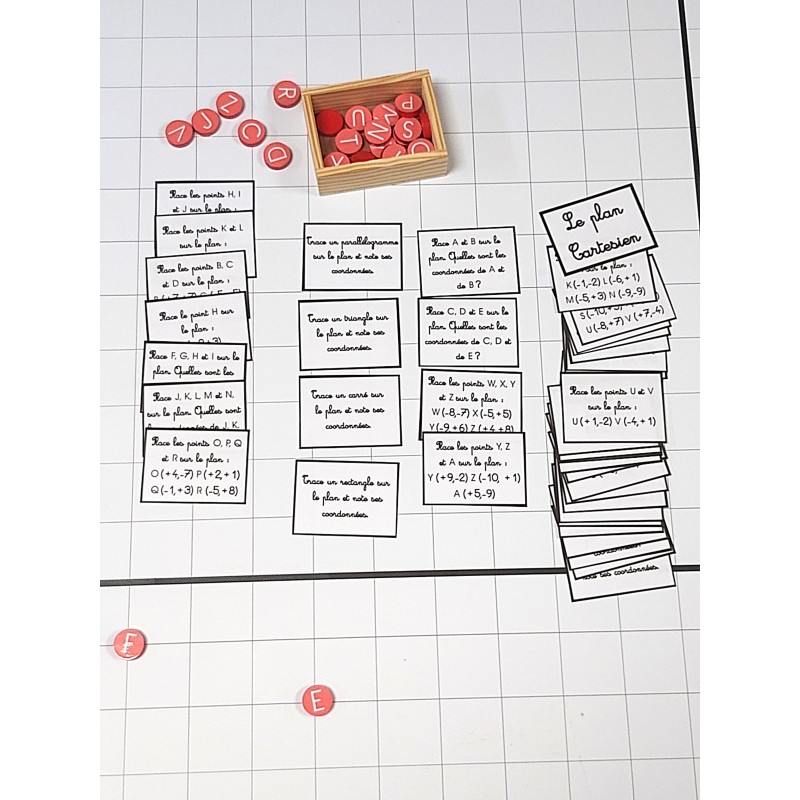 V
J
Z
C
D
R
P
U
S
T
N
Place les points H, I
et J sur le plan :
Place les points K et L
sur le plan :
Place les points B, C
et D sur le plan :
Place le point H sur
le plan :
Place F, G, H et I sur le
plan. Quelles sont les
Place J, K, L, M et N,
sur le plan. Quelles sont
Place les points O, P, Q
et R sur le plan :
O (+4,-7) P (+2,+1)
Q (-1,+3) R (-5,+8)
Trace un parallélogramme
sur le plan et note ses
coordonnées.
Trace un triangle sur
le plan et note ses
coordonnées.
Trace un carré sur
le plan et note ses
coordonnées.
Trace un rectangle sur
le plan et note ses
coordonnées.
Place A et B sur le
plan. Quelles sont les
coordonnées de A et
de B ?
Place C, D et E sur le
plan. Quelles sont les
coordonnées de C, D et
de E ?
Place les points W, X, Y
et Z sur le plan :
W (-8,-7) X (-5,+5)
Y (-9,+6) Z (+4,+8)
Place les points Y, Z
et A sur le plan :
Y (+9,-2) Z (-10, +1)
A (+5,-9)
Le plan
Cartesien
sur le plan :
K (-1,-2) L (-6,+1)
M (-5,+3) N (-9,-9)
U (-8,+7) V (+7,-4)
Place les points U et V
sur le plan :
U (+1,-2) V (-4,+1)
coordonnées.
note ses coordonnées.
E